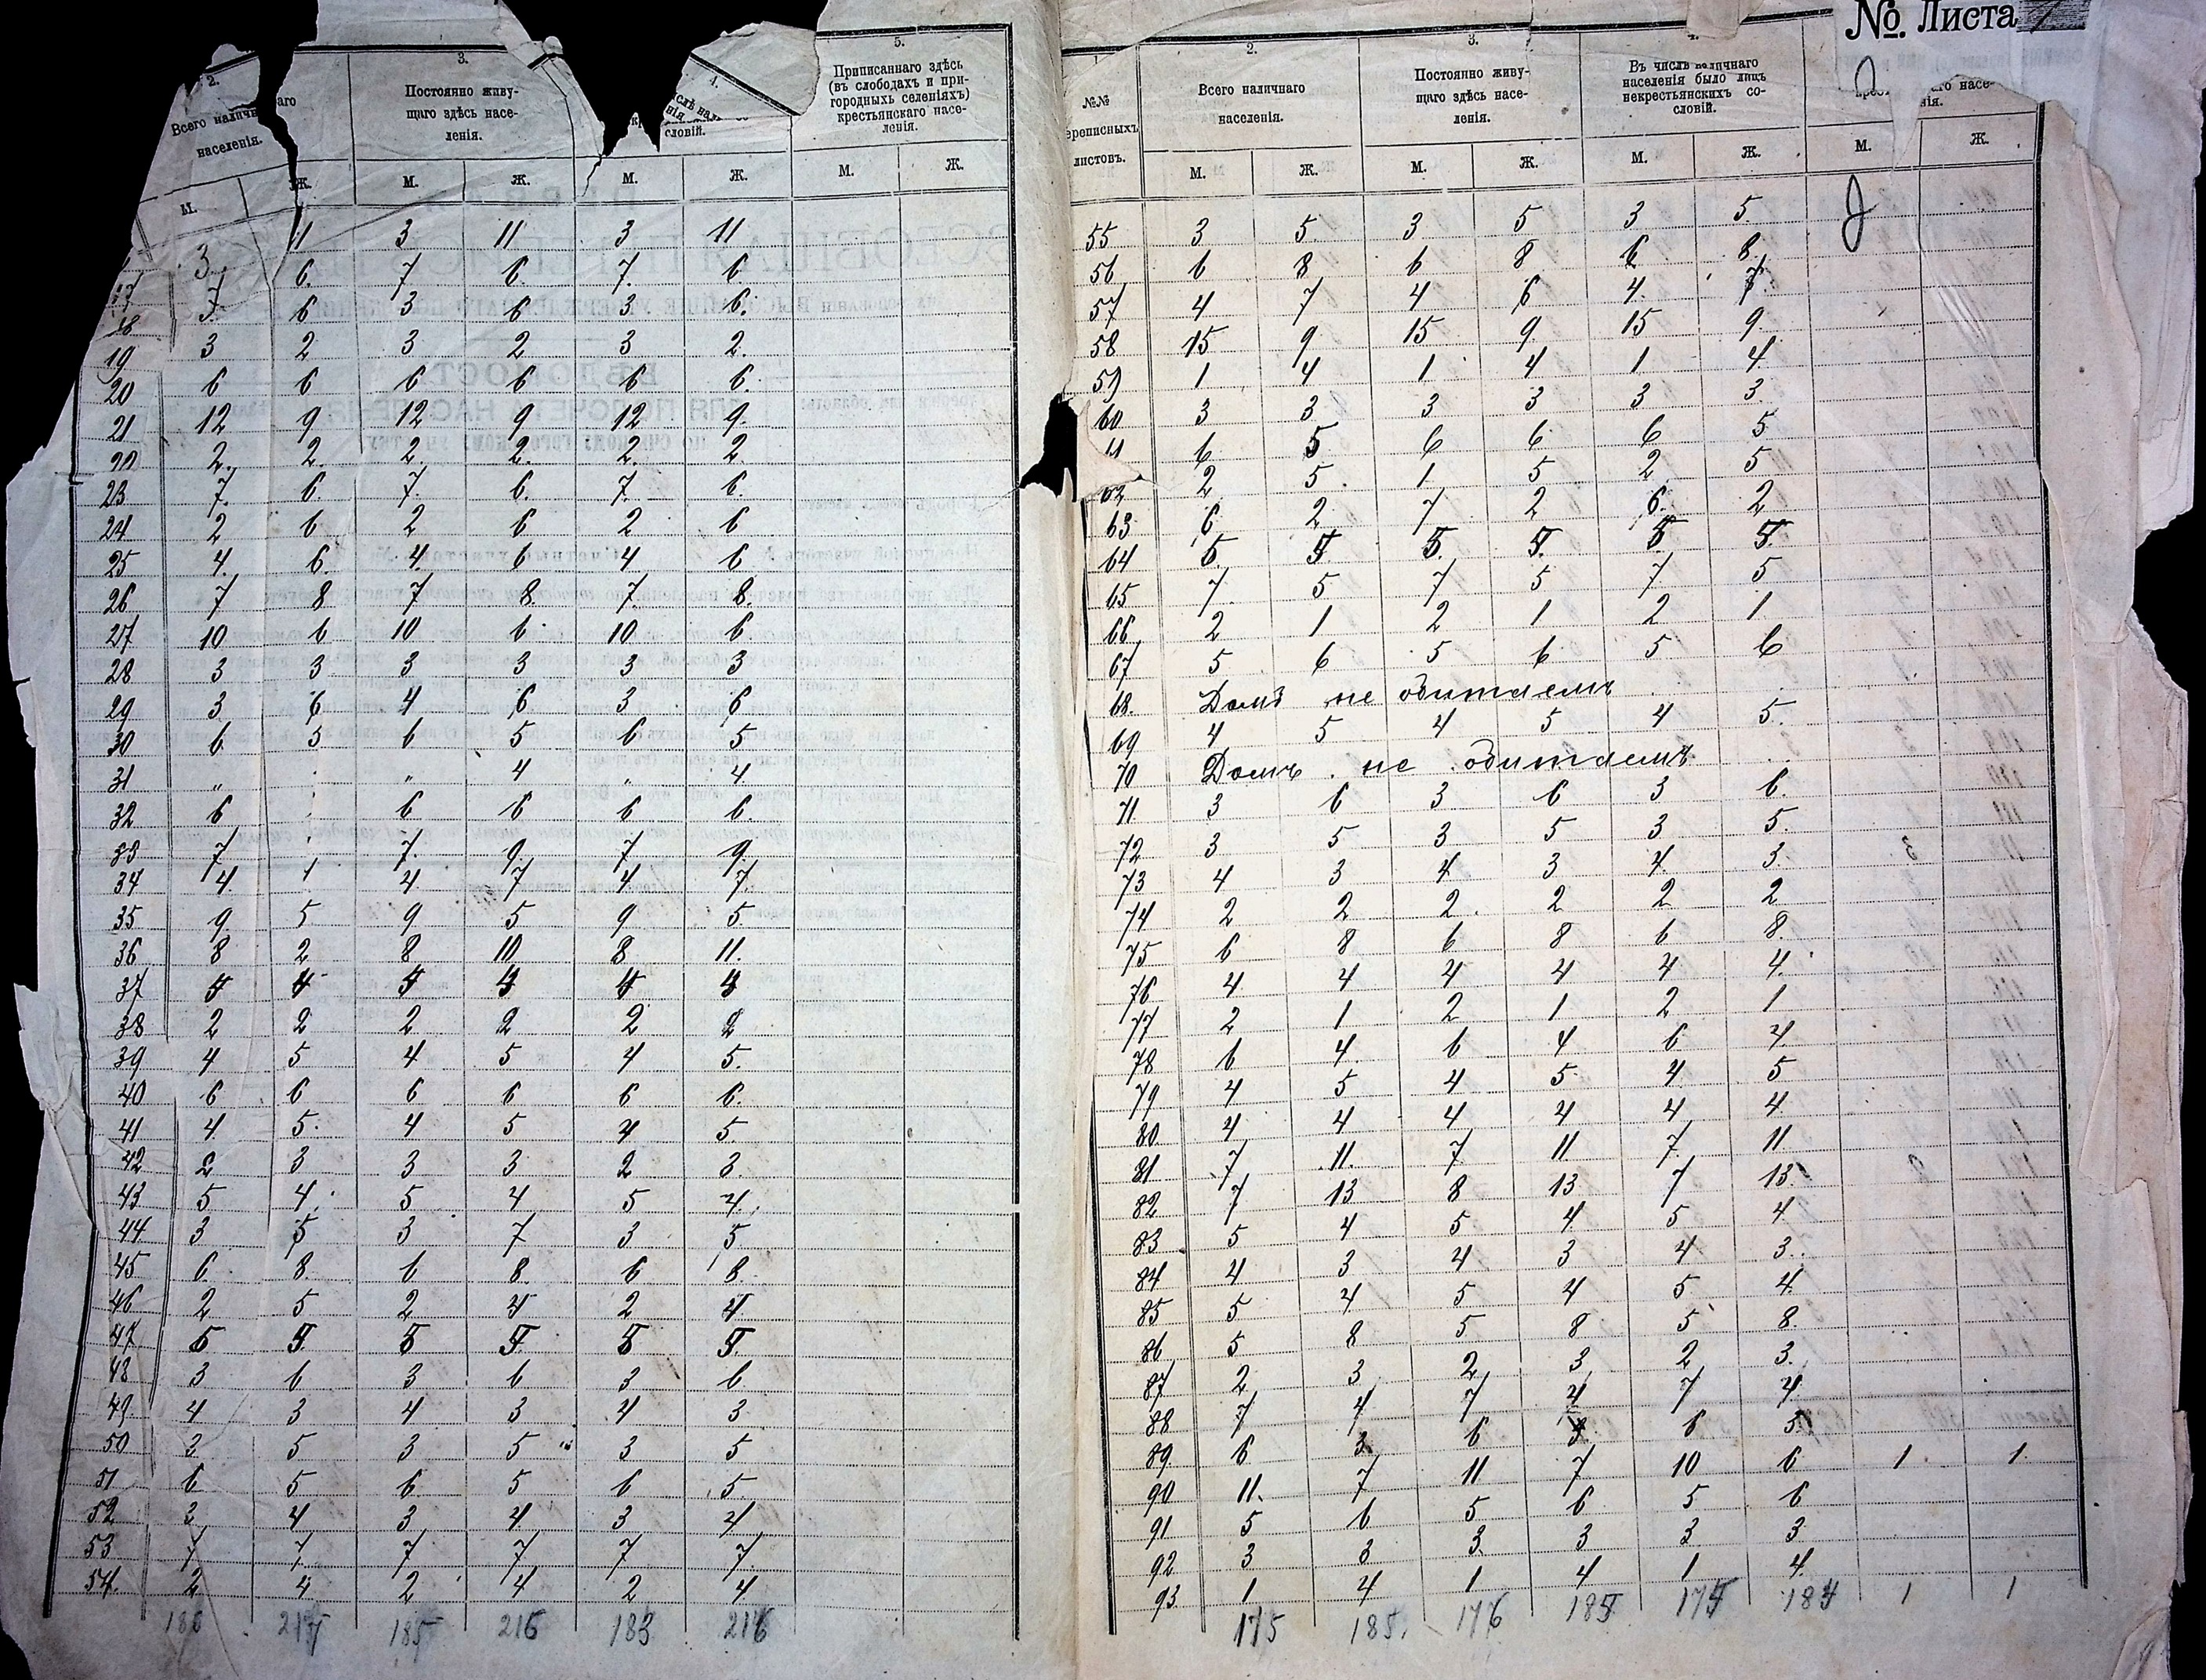 №. Листа
2. 3. 4. 5.
Всего наличн аго населенія.
Постоянно живу-
щаго здѣсь насе-
ленія.
словій.
Приписаннаго здѣсь
(въ слободахъ и при-
городныхъ селеніяхъ)
крестьянскаго насе-
ленія.
М. Ж. М. Ж. М. Ж. М. Ж.
3 11 3 11 3 11
7 6 7 6 7 6
18 3 6 3 6 3 6
19 3 2 3 2 3 2
20 6 6 6 6 6 6
21 12 9 12 9 12 9
22 2 2 2 2 2 2
23 7 6 7 6 7 6
24 2 6 2 6 2 6
25 4 6 4 6 4 6
26 7 8 7 8 7 8
27 10 6 10 6 10 6
28 3 3 3 3 3 3
29 3 6 4 6 3 6
30 6 5 6 5 6 5
31 „ „ 4 „ 4
32 6 6 6 6 6
33 7 7 9 7 9
34 4 4 7 4 7
35 9 5 9 5 9 5
36 8 2 8 10 8 11
37
38 2 2 2 2 2 2
39 4 5 4 5 4 5
40 6 6 6 6 6 6
41 4 5 4 5 4 5
42 2 3 3 3 2 3
43 5 4 5 4 5 4
44 3 5 3 7 3 5
45 6 8 6 8 6 8
46 2 5 2 4 2 4
47
48 3 6 3 6 3 6
49 4 3 4 3 4 3
50 3 5 3 5 3 5
51 6 5 6 5 6 5
52 3 4 3 4 3 4
53 7 7 7 7 7 7
54 2 4 2 4 2 4
185 216 183 216
№№
переписныхъ
листовъ.
2. 3. 4.
Всего наличнаго
населенія.
Постоянно живу-
щаго здѣсь насе-
ленія.
Въ числѣ наличнаго
населенія было лицъ
некрестьянскихъ со-
словій.
М. Ж. М. Ж. М. Ж. М. Ж.
55 3 5 3 5 3 5
56 6 8 6 8 6 8
57 4 7 4 6 4 7
58 15 9 15 9 15 9
59 1 4 1 4 1 4
60 3 3 3 3 3 3
6 5 6 6 6 5
62 2 5 1 5 2 5
63 6 2 7 2 6 2
64 5 5 5
65 7 5 7 5 7 5
66 2 1 2 1 2 1
67 5 6 5 6 5 6
68. Домъ не обитаемъ
69 4 5 4 5 4 5
70 Домъ не обитаемъ
71 3 6 3 6 3 6
72 3 5 3 5 3 5
73 4 3 4 3 4 3
74 2 2 2 2 2 2
75 6 8 6 8 6 8
76 4 4 4 4 4 4
77 2 1 2 1 2 1
78 6 4 6 4 6 4
79 4 5 4 5 4 5
80 4 4 4 4 4 4
81 7 11 7 11 7 11
82 7 13 8 13 7 13
83 5 4 5 4 5 4
84 4 3 4 3 4 3
85 5 4 5 4 5 4
86 5 8 5 8 5 8
87 2 3 2 3 2 3
88 7 4 7 4 7 4
89 6 3 6 6 5
90 11 7 11 7 10 6 1 1
91 5 6 5 6 5 6
92 3 3 3 3 3 3
93 1 4 1 4 1 4
175 185 176 1 1